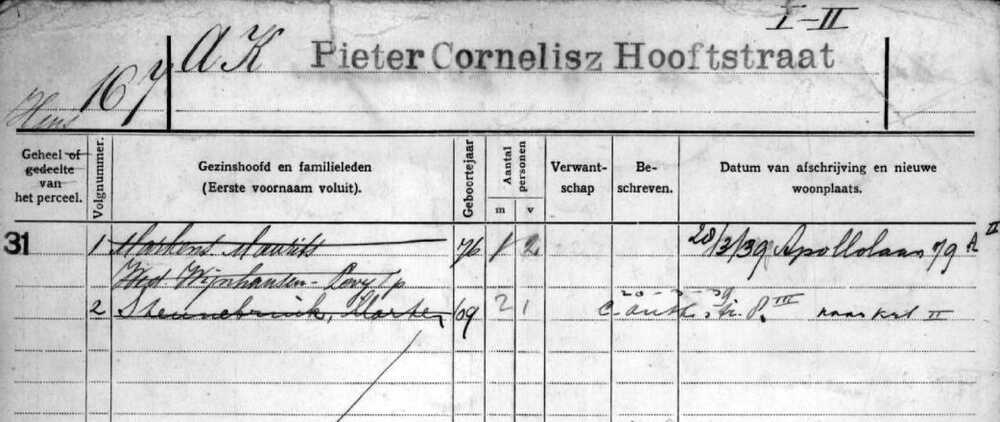 I-II
AK Pieter Cornelisz Hooftstraat
167
Geheel of gedeelte van het perceel.
Volgnummer.
Gezinshoofd en familieleden
(Eerste voornaam voluit).
Geboortejaar
Aantal personen
m v
Verwant-
schap
Be-
schreven.
Datum van afschrijving en nieuwe
woonplaats.
31 1 Markens Maurits 76 1 2 28/3/39 Apollolaan 79 A II
Wed. Wijnhausen - Levy
2 Stennebruik, Marten 09 2 1 III II
20-3-39